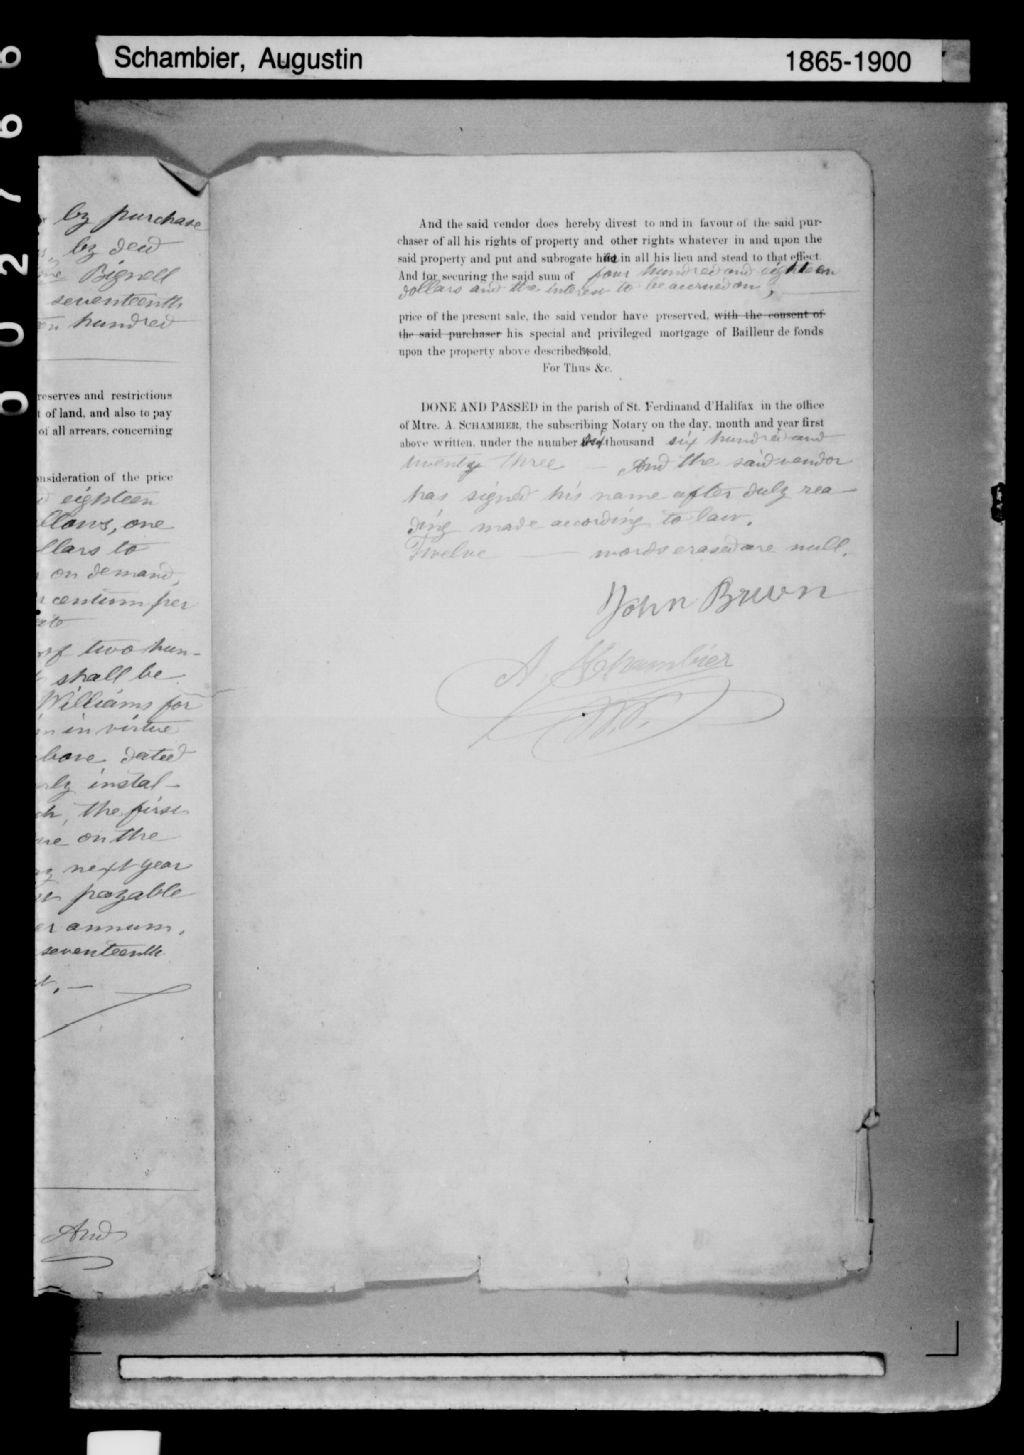 Schambier, Augustin 1865-1900
02766
by purchase
by deed
Bignell
seventeenth
hundred
reserves and restrictions
of land, and also to pay
of all arrears, concerning
consideration of the price
eighteen
one
llars to
on demand,
centum per
of two hun-
shall be
Williams for
in virtue
above dated
instal-
the first
on the
next year
payable
annum,
seventeenth
And
And the said vendor does hereby divest to and in favour of the said pur-
chaser of all his rights of property and other rights whatever in and upon the
said property and put and subrogate him in all his lieu and stead to that effect.
And for securing the said sum of four hundred and eighteen
dollars and the interest to be accrued on,
price of the present sale, the said vendor have preserved, with the consent of
the said purchaser his special and privileged mortgage of Bailleur de fonds
upon the property above described sold.
For Thus &c.
DONE AND PASSED in the parish of St. Ferdinand d'Halifax in the office
of Mtre. A. SCHAMBIER, the subscribing Notary on the day, month and year first
above written, under the number six thousand six hundred and
twenty three — And the said vendor
has signed his name after duly rea
ding made according to law.
Twelve — words erased are null.
John Brown
A. Schambier
N.P.